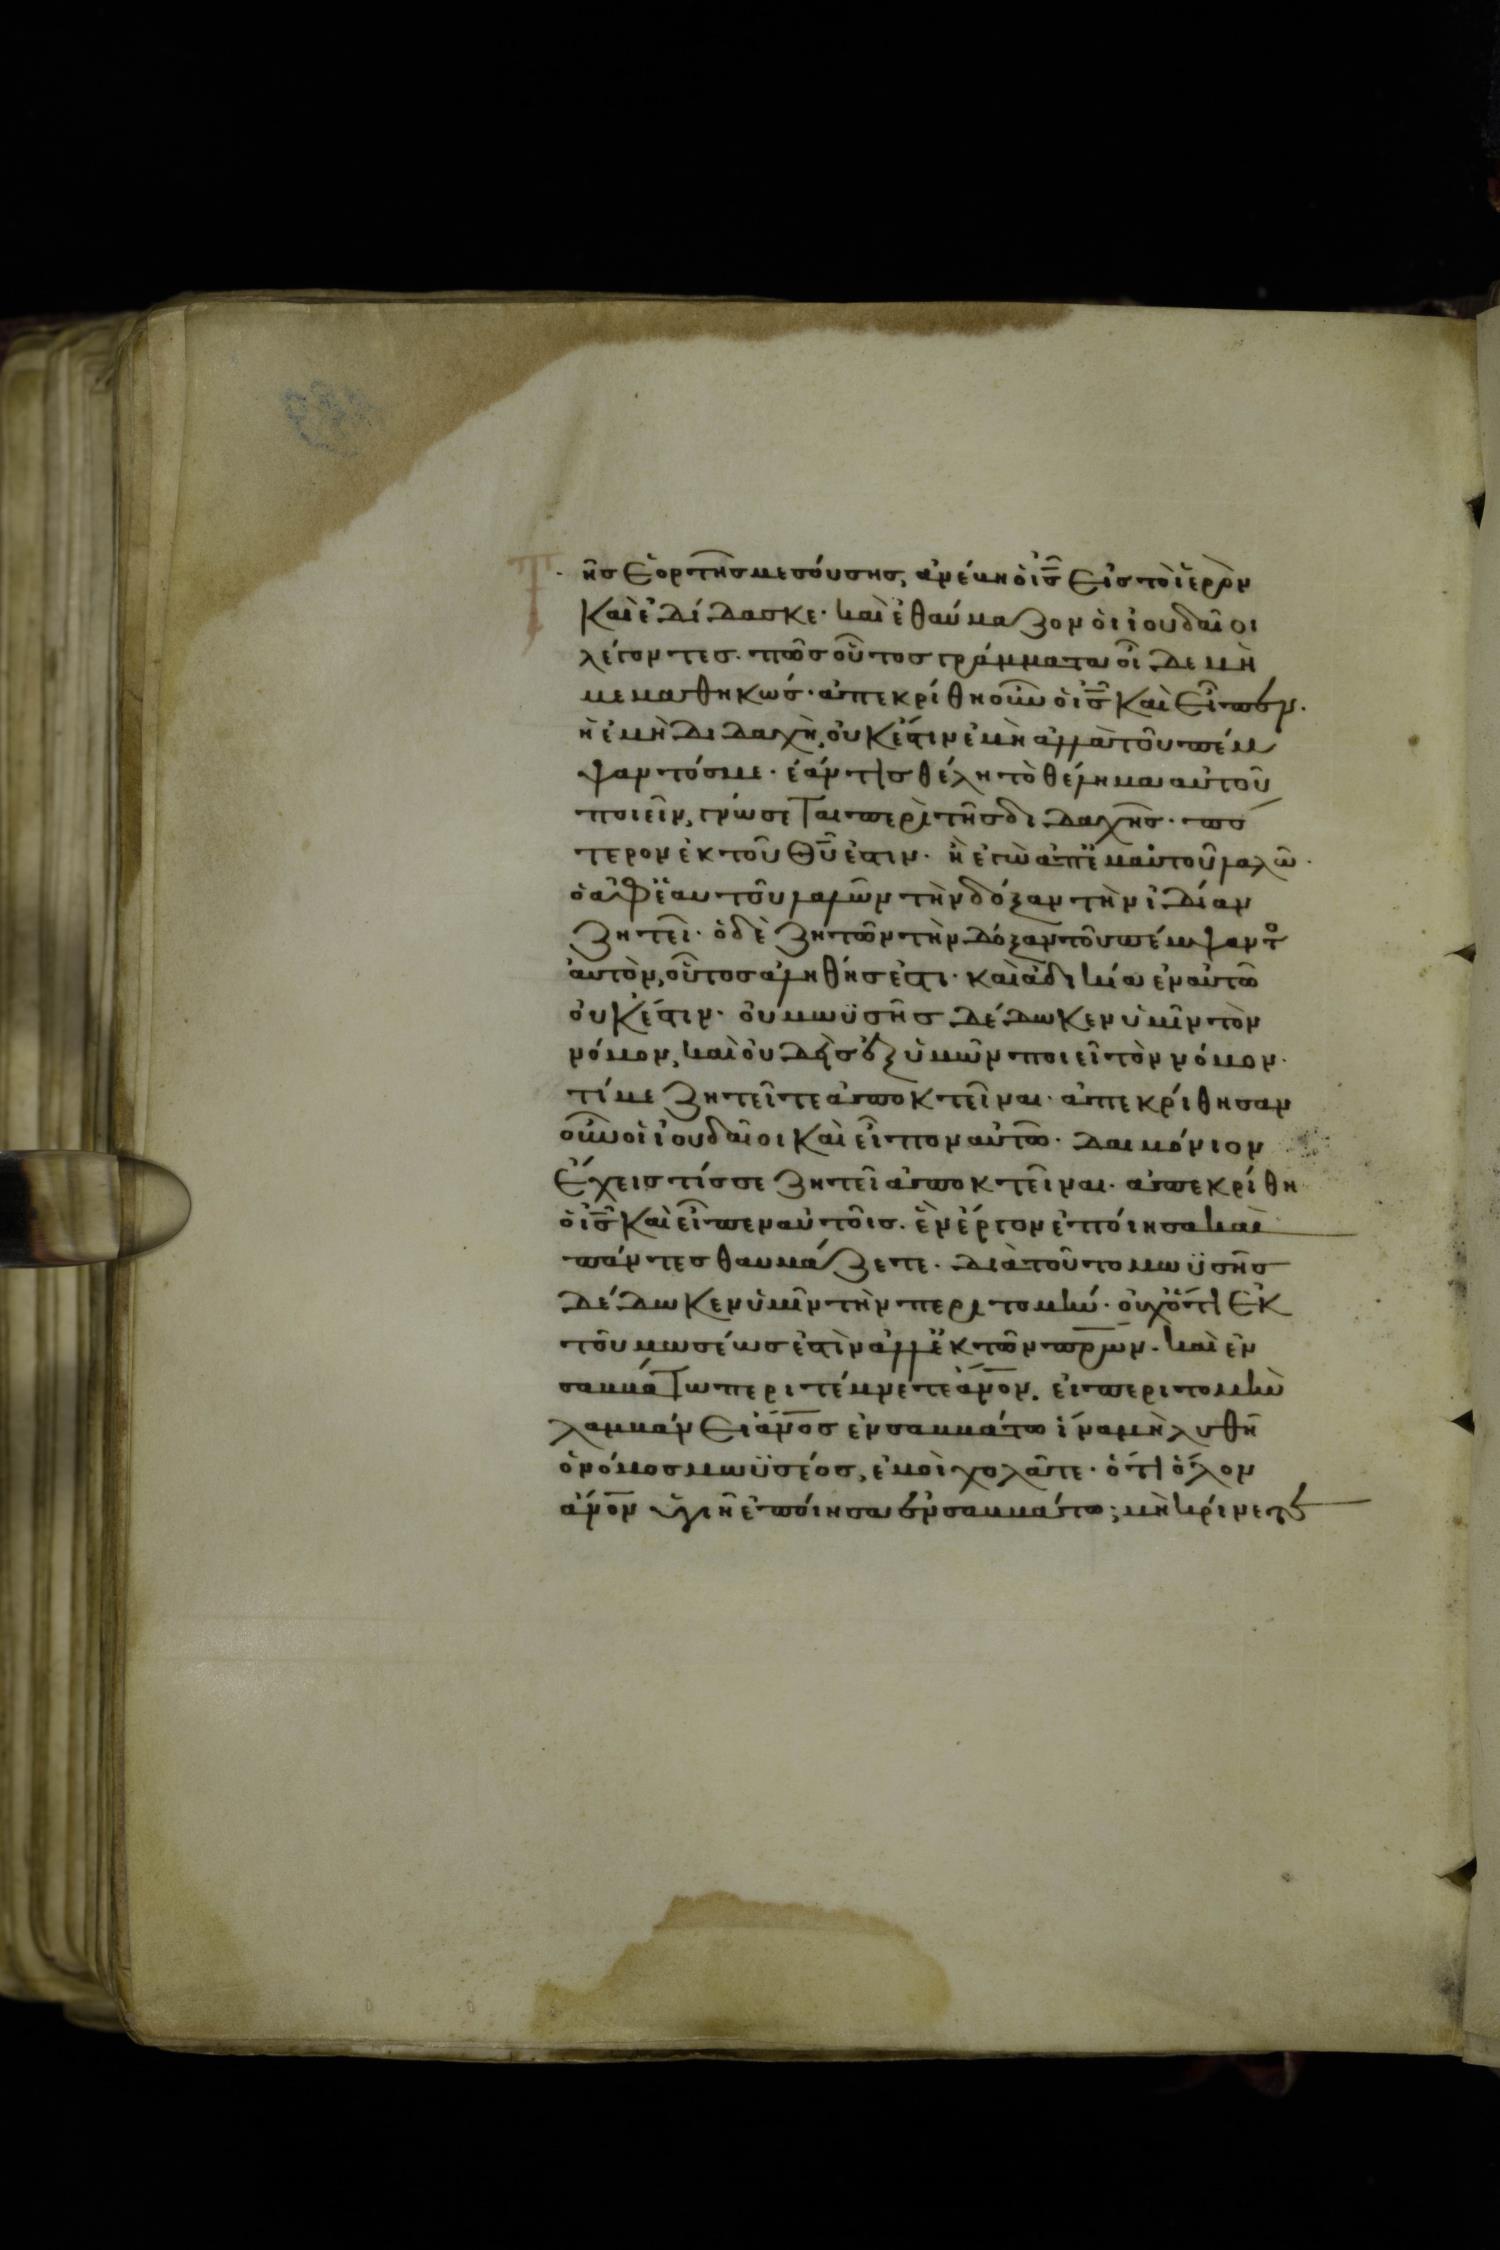 Τῆς ἑορτῆς μεσούσης, ἀνέβη ὁ ις εἰς τὸ ἱερὸν
Καὶ ἐδίδασκε· καὶ ἐθαύμαζον οἱ ἰουδαῖοι
λέγοντες· πῶς οὗτος γράμματα οἶδε μὴ
μεμαθηκώς· ἀπεκρίθη οὖν ὁ ις Καὶ εἶπεν·
ἡ ἐμὴ διδαχὴ, οὐκ ἔστιν ἐμὴ ἀλλὰ τοῦ πέμ
ψαντός με· ἐάν τις θέλη τὸ θέλημα αὐτοῦ
ποιεῖν, γνώσεται περὶ τῆς διδαχῆς· πό
τερον ἐκ τοῦ θυ ἐστιν· ἢ ἐγὼ ἀπ' ἐμαυτοῦ λαλῶ·
ὁ ἀφ' ἑαυτοῦ λαλῶν τὴν δόξαν τὴν ἰδίαν
ζητεῖ· ὁ δὲ ζητῶν τὴν δόξαν τοῦ πέμψαντος
αυτὸν, οὗτος ἀληθής ἐστι· καὶ ἀδικία ἐν αὐτῶ
οὐκ ἔστιν· οὐ μωϋσῆς δέδωκεν ὑμῖν τὸν
νόμον, καὶ οὐδεὶς ἐξ ὑμῶν ποιεῖ τὸν νόμον·
τί με ζητεῖτε ἀποκτεῖναι· ἀπεκρίθησαν
οὖν οἱ ἰουδαῖοι καὶ εἶπον αὐτῶ· δαιμόνιον
ἔχεις τίς σε ζητεῖ ἀποκτεῖναι· ἀπεκρίθη
ὁ ις Καὶ εἶπεν αὐτοῖς· ἓν ἔργον ἐποίησα καὶ
πάντες θαυμάζετε· διὰ τοῦτο μωϋσῆς
δέδωκεν ὑμῖν τὴν περιτομήν· οὐχ ὅτι ἐκ
τοῦ μωσέως ἐστὶν ἀλλ' ἐκ τῶν πρων· καὶ ἐν
σαββάτω περιτέμνετε ἄνον· εἰ περιτομὴ
λαμβάνει ἄνος ἐν σαββάτω ἵνα μὴ λυθῆ
ὁ νόμος μωϋσέος, ἐμοὶ χολᾶτε· ὅτι ὅλον
ἄνον ὑγιῆ ἐποίησα ἐν σαββάτω; μὴ κρίνετε